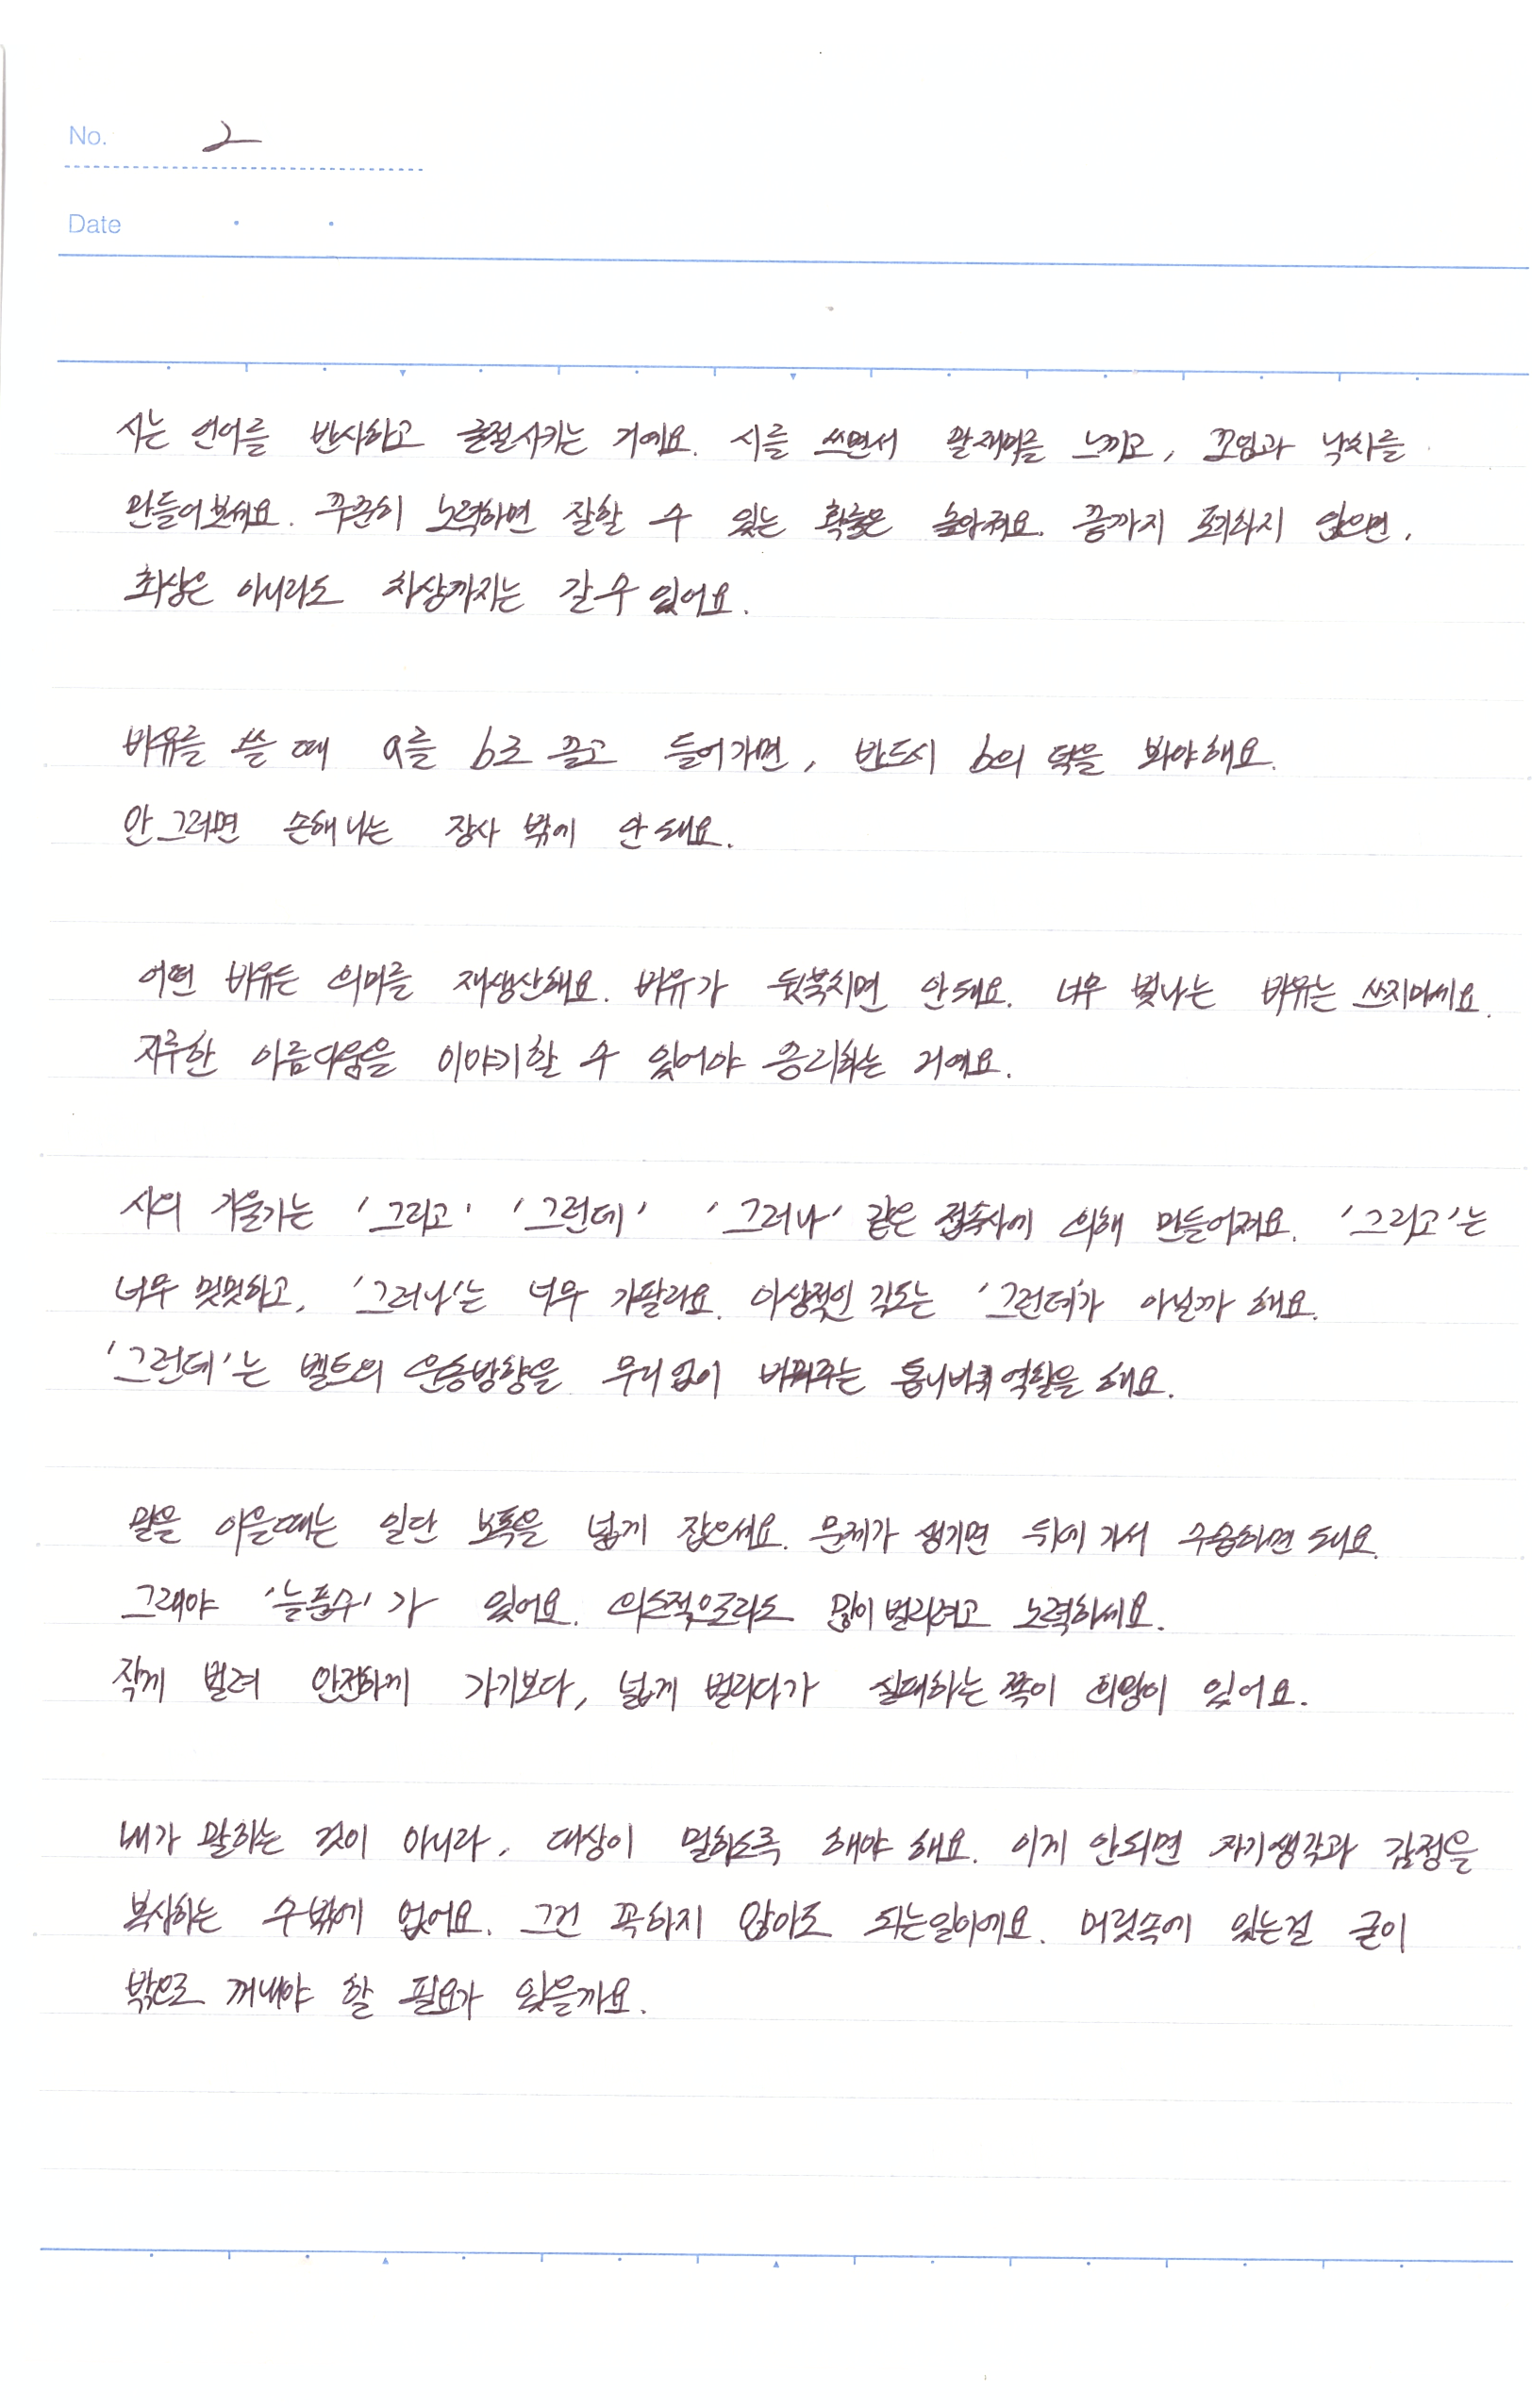 No. 2
Date
시는 언어를 반사하고 굴절시키는 거예요. 시를 쓰면서 말재미를 느끼고, 꼬임과 낙차를
만들어보세요. 꾸준히 노력하면 잘할 수 있는 확률은 높아져요. 끝까지 포기하지 않으면,
최상은 아니라도 차상까지는 갈 수 있어요.
비유를 쓸 때 a를 b로 끌고 들어가면, 반드시 b의 덕을 봐야해요.
안 그러면 손해 나는 장사 밖에 안 돼요.
어떤 비유든 의미를 재생산해요. 비유가 뒷북치면 안돼요. 너무 빛나는 비유는 쓰지마세요.
지루한 아름다움을 이야기할 수 있어야 승리하는 거예요.
시의 기울기는 '그리고' '그런데' '그러나' 같은 접속사에 의해 만들어져요. '그리고'는
너무 밋밋하고, '그러나'는 너무 가팔라요. 이상적인 각도는 '그런데'가 아닐까 해요.
'그런데'는 벨트의 운동방향을 무리 없이 바꿔주는 톱니바퀴 역할을 해요.
말을 이을때는 일단 보폭을 넓게 잡으세요. 문제가 생기면 뒤에 가서 수습하면 돼요.
그래야 '늘품수'가 있어요. 의식적으로라도 많이 벌리려고 노력하세요.
작게 벌려 안전하게 가기보다, 넓게 벌리다가 실패하는 쪽이 희망이 있어요.
내가 말하는 것이 아니라, 대상이 말하도록 해야 해요. 이게 안되면 자기생각과 감정을
복사하는 수밖에 없어요. 그건 꼭 하지 않아도 되는일이에요. 머릿속에 있는걸 굳이
밖으로 꺼내야 할 필요가 있을까요.